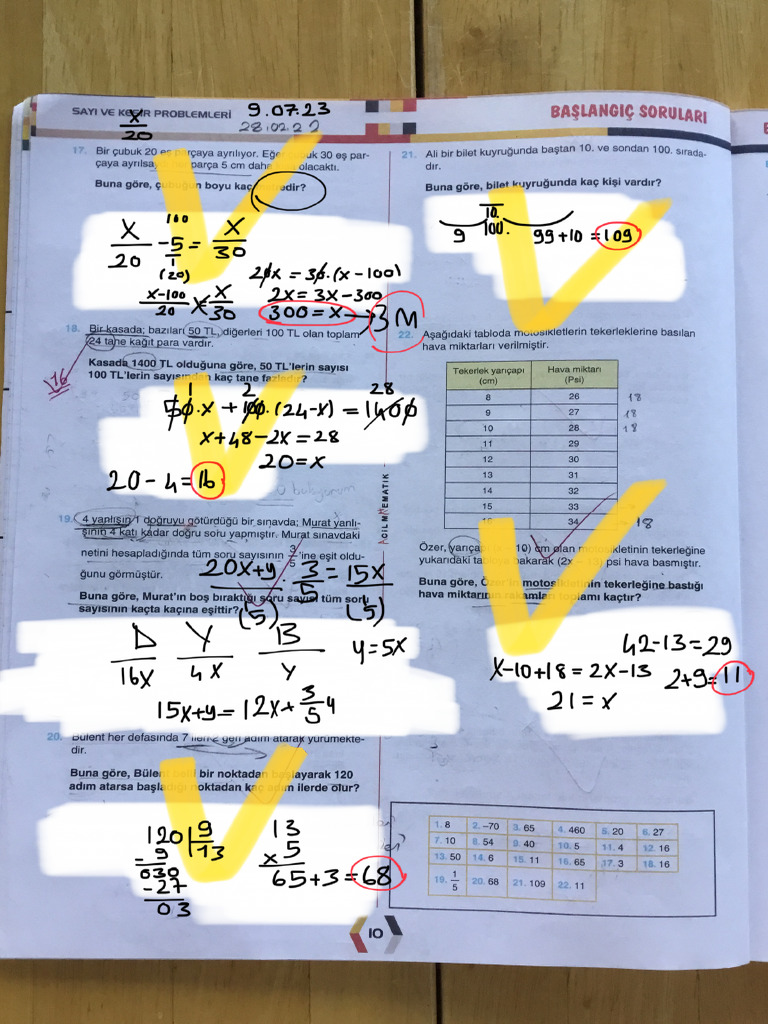 SAYI VE KESİR PROBLEMLERİ
9.07.23
28.02.22
BAŞLANGIÇ SORULARI
x/20
17. Bir çubuk 20 eş parçaya ayrılıyor. Eğer çubuk 30 eş par-
çaya ayrılsaydı her parça 5 cm daha olacaktı.
Buna göre, çubuğun boyu kaç metredir?
100
x/20 - 5/1 = x/30
(20)
x-100/20 x/30
20x = 30.(x-100)
2x = 3x-300
300 = x → 3 M
18. Bir kasada; bazıları 50 TL, diğerleri 100 TL olan toplam
24 tane kağıt para vardır.
16
Kasada 1400 TL olduğuna göre, 50 TL'lerin sayısı
100 TL'lerin sayısından kaç tane fazladır?
1 2 28
50.x + 100.(24-x) = 1400
x+48-2x = 28
20 = x
20 - 4 = 16
19. 4 yanlışın 1 doğruyu götürdüğü bir sınavda; Murat yanlı-
şının 4 katı kadar doğru soru yapmıştır. Murat sınavdaki
netini hesapladığında tüm soru sayısının 3/5'ine eşit oldu-
ğunu görmüştür.
20x+y . 3/5 = 15x
(5) (5)
Buna göre, Murat'ın boş bıraktığı soru sayısı tüm soru
sayısının kaçta kaçına eşittir?
D Y B
16x 4x y
y = 5x
15x+y = 12x+3/5 y
20. Bülent her defasında 7 ileri 2 geri adım atarak yürümekte-
dir.
Buna göre, Bülent belli bir noktadan başlayarak 120
adım atarsa başladığı noktadan kaç adım ilerde olur?
120 | 9
9 13
030
-27
03
13
x 5
65+3 = 68
ACİL MATEMATİK
21. Ali bir bilet kuyruğunda baştan 10. ve sondan 100. sırada-
dır.
Buna göre, bilet kuyruğunda kaç kişi vardır?
10.
9 100. 99+10 = 109
22. Aşağıdaki tabloda motosikletlerin tekerleklerine basılan
hava miktarları verilmiştir.
Tekerlek yarıçapı (cm) Hava miktarı (Psi)
8 26 18
9 27 18
10 28 18
11 29
12 30
13 31
14 32
15 33
16 34 18
Özer, yarıçapı (x - 10) cm olan motosikletinin tekerleğine
yukarıdaki tabloya bakarak (2x - 13) psi hava basmıştır.
Buna göre, Özer'in motosikletinin tekerleğine bastığı
hava miktarının rakamları toplamı kaçtır?
42-13 = 29
x-10+18 = 2x-13
2+9 = 11
21 = x
1. 8 2. -70 3. 65 4. 460 5. 20 6. 27
7. 10 8. 54 9. 40 10. 5 11. 4 12. 16
13. 50 14. 6 15. 11 16. 65 17. 3 18. 16
19. 1/5 20. 68 21. 109 22. 11
10